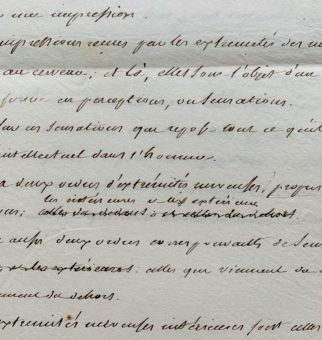 une impression
impressions reçues par les extremités des
au cerveau; et là, elles sont l'objet d'un
en perceptions, ou sensations.
sur ces sensations que repose tout ce qu'il
intellectuel dans l'homme.
a deux ordres d'extrémités nerveuses, propres
les intérieures & aux extérieures
celles du dedans & celles du dehors
aussi deux ordres correspondants de sens
& les extérieures. celles qui viennent de
du dehors.
extrémités nerveuses intérieures sont celles